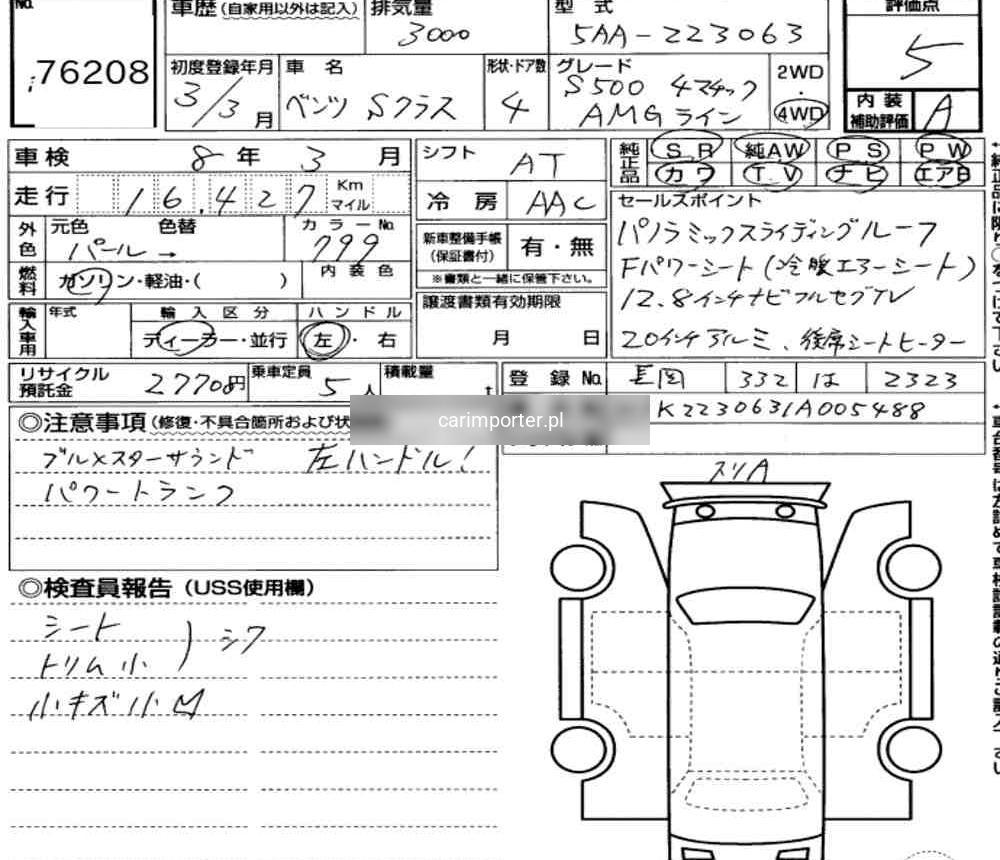 No.
76208
車歴 (自家用以外は記入)
排気量
3000
型 式
5AA-223063
評価点
5
初度登録年月
3/3月
車 名
ベンツ Sクラス
形状・ドア数
4
グレード
S500 4マチック
AMGライン
2WD
・
4WD
内 装
補助評価
A
車検 8年 3月
走行 16,427 Km マイル
シフト AT
冷 房 AAC
純正品
SR 純AW PS PW
カワ T.V ナビ エアB
外色
元色 色替
パール→
カラーNo.
799
新車整備手帳
(保証書付)
有・無
※書類と一緒に保管下さい。
燃料
ガソリン・軽油・( )
内 装 色
セールスポイント
パノラミックスライディングルーフ
Fパワーシート(冷暖エアーシート)
12.8インチナビフルセグTV
20インチアルミ、後席シートヒーター
輸入車用
年式
輸 入 区 分
ディーラー・並行
ハ ン ド ル
左・右
譲渡書類有効期限
月 日
リサイクル
預託金
27708円
乗車定員
5人
積載量
t
登 録 No. 長岡 332 は 2323
K2230631A005488
carimporter.pl
◎注意事項 (修復・不具合箇所および状
ブルメスターサウンド 左ハンドル!
パワートランク
スリA
◎検査員報告 (USS使用欄)
シート
トリム小
) シワ
小キズ小凹